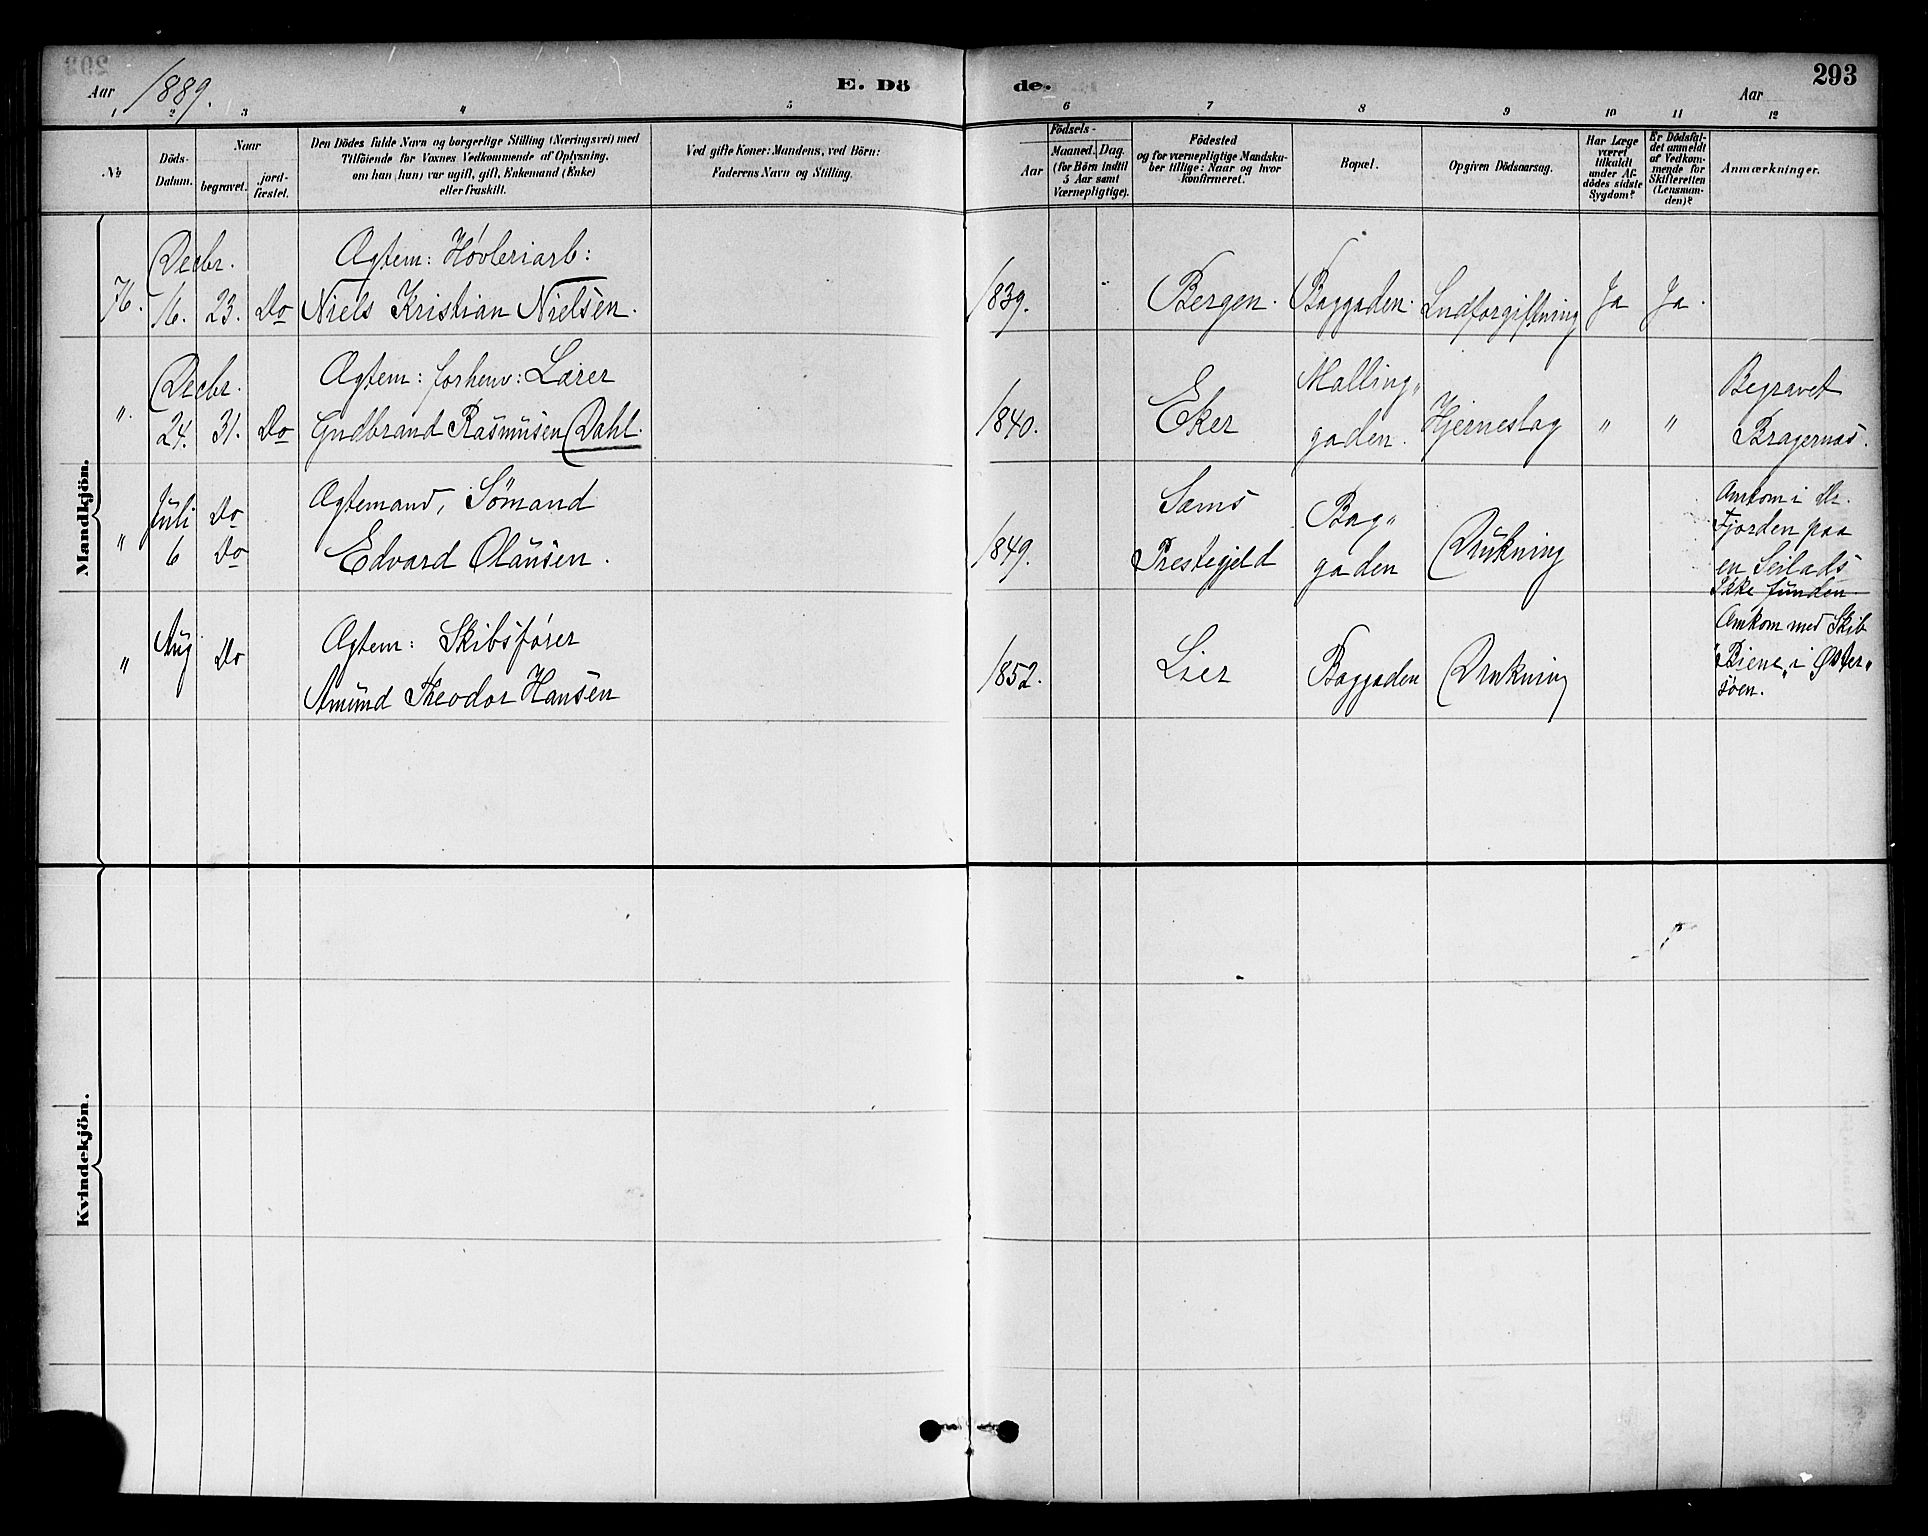 Aar 1889.
E. Dö de.
293
Aar
1 2 3 4 5 6 7 8 9 10 11 12
№
Döds-
Datum.
Naar
begravet.
jord-
fæstet.
Den Dödes fulde Navn og borgerlige Stilling (Næringsvei) med
Tilföiende for Voxnes Vedkommende af Oplysning,
om han (hun) var ugift, gift, Enkemand (Enke)
eller fraskilt.
Ved gifte Koner: Mandens, ved Börn:
Faderens Navn og Stilling.
Födsels-
Aar
Maaned. Dag.
(for Børn indtil
5 Aar samt
Værnepligtige).
Födested
og for værnepligtige Mandska-
ber tillige: Naar og hvor
konfirmeret.
Bopæl.
Opgiven Dödsaarsag.
Har Læge
været
tilkaldt
under Af-
dödes sidste
Sygdom?
Er Dödsfal-
det anmeldt
af Vedkom-
mende for
Skifteretten
(Lensman-
den)?
Anmærkninger.
Mandkjön.
76. Decbr. 16. 23. Do
Ægtem: Høvleriarb:
Niels Kristian Nielsen.
1839. Bergen. Baggaden. Ja Ja.
". Decbr. 24. 31. Do
Ægtem: forhenv: Lærer
Gudbrand Rasmusen Dahl.
1840. Eker Malling"
gaden. Hjerneslag " "
Begravet
Bragernæs.
" Juli 6 Do Do
Ægtemand, Sömand
Edvard Olausen.
1849. Sems
Prestegjeld
Bag"
gaden
Drukning
Omkom i Dr.
Fjorden paa
en Seilads
Ikke funden
" Aug Do
Ægtem: Skibsfører
Amund Theodor Hansen
1852. Lier Baggaden Drukning
Omkom med Skib
"Biene" i Øster"
söen.
Kvindekjön.